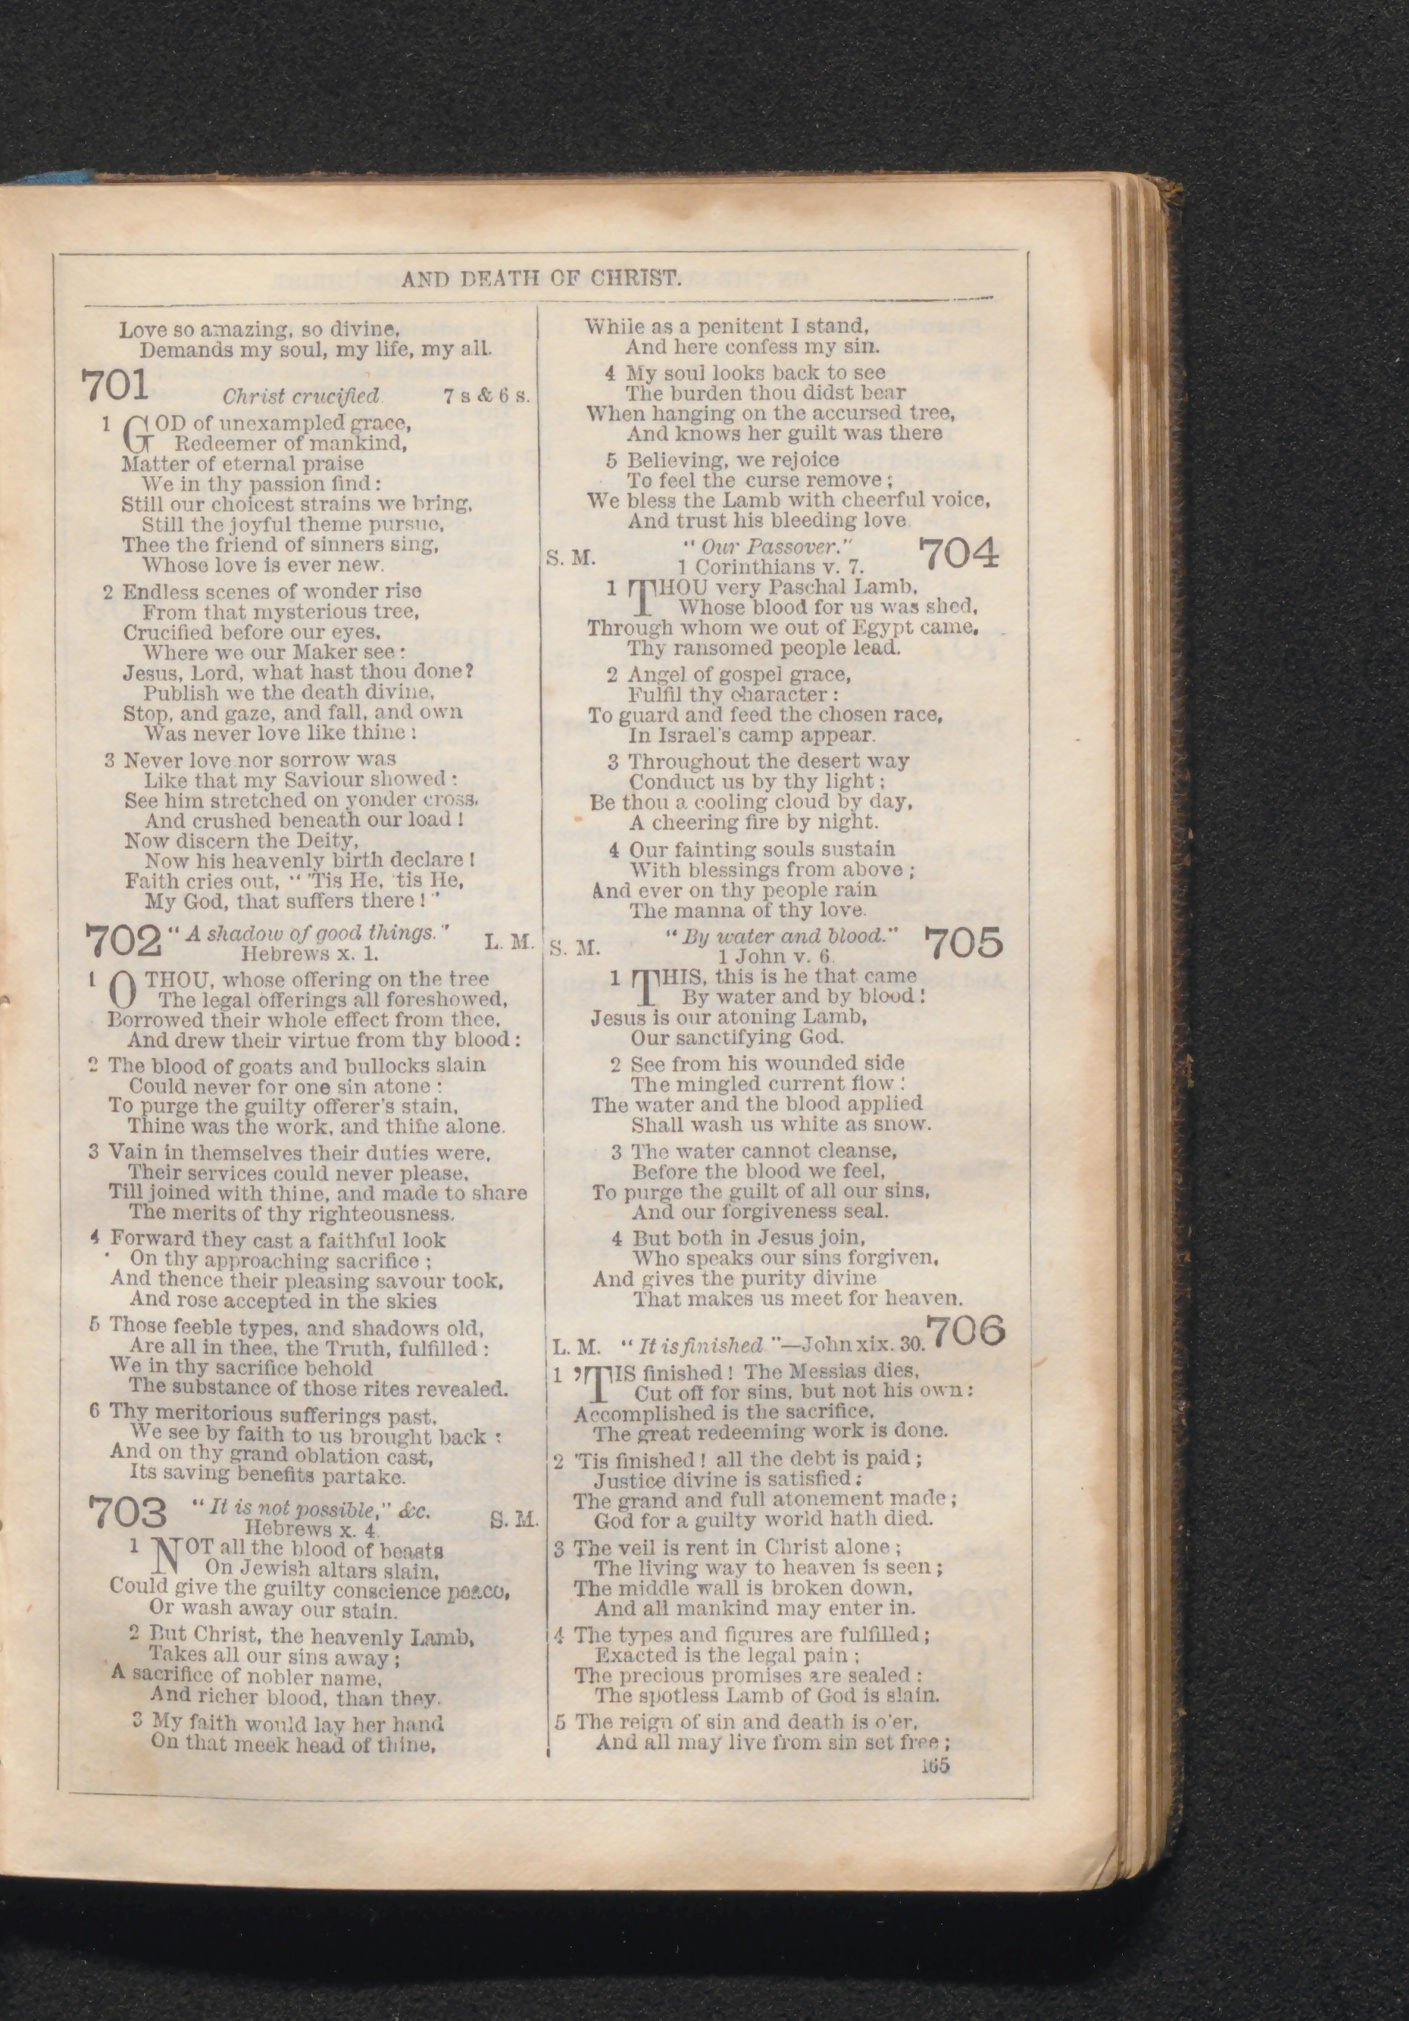 AND DEATH OF CHRIST.
Love so amazing, so divine,
Demands my soul, my life, my all.
701 Christ crucified. 7 s & 6 s.
1 GOD of unexampled grace,
Redeemer of mankind,
Matter of eternal praise
We in thy passion find:
Still our choicest strains we bring,
Still the joyful theme pursue,
Thee the friend of sinners sing,
Whose love is ever new.
2 Endless scenes of wonder rise
From that mysterious tree,
Crucified before our eyes,
Where we our Maker see:
Jesus, Lord, what hast thou done?
Publish we the death divine,
Stop, and gaze, and fall, and own
Was never love like thine!
3 Never love nor sorrow was
Like that my Saviour showed:
See him stretched on yonder cross,
And crushed beneath our load!
Now discern the Deity,
Now his heavenly birth declare!
Faith cries out, "'Tis He, 'tis He,
My God, that suffers there!"
702 "A shadow of good things." L. M.
Hebrews x. 1.
1 O THOU, whose offering on the tree
The legal offerings all foreshowed,
Borrowed their whole effect from thee,
And drew their virtue from thy blood:
2 The blood of goats and bullocks slain
Could never for one sin atone:
To purge the guilty offerer's stain,
Thine was the work, and thine alone.
3 Vain in themselves their duties were,
Their services could never please,
Till joined with thine, and made to share
The merits of thy righteousness.
4 Forward they cast a faithful look
On thy approaching sacrifice;
And thence their pleasing savour took,
And rose accepted in the skies
5 Those feeble types, and shadows old,
Are all in thee, the Truth, fulfilled:
We in thy sacrifice behold
The substance of those rites revealed.
6 Thy meritorious sufferings past,
We see by faith to us brought back:
And on thy grand oblation cast,
Its saving benefits partake.
703 "It is not possible," &c. S. M.
Hebrews x. 4.
1 NOT all the blood of beasts
On Jewish altars slain,
Could give the guilty conscience peace,
Or wash away our stain.
2 But Christ, the heavenly Lamb,
Takes all our sins away;
A sacrifice of nobler name,
And richer blood, than they.
3 My faith would lay her hand
On that meek head of thine,
While as a penitent I stand,
And here confess my sin.
4 My soul looks back to see
The burden thou didst bear
When hanging on the accursed tree,
And knows her guilt was there
5 Believing, we rejoice
To feel the curse remove;
We bless the Lamb with cheerful voice,
And trust his bleeding love.
S. M. "Our Passover." 704
1 Corinthians v. 7.
1 THOU very Paschal Lamb,
Whose blood for us was shed,
Through whom we out of Egypt came,
Thy ransomed people lead.
2 Angel of gospel grace,
Fulfil thy character:
To guard and feed the chosen race,
In Israel's camp appear.
3 Throughout the desert way
Conduct us by thy light;
Be thou a cooling cloud by day,
A cheering fire by night.
4 Our fainting souls sustain
With blessings from above;
And ever on thy people rain
The manna of thy love.
S. M. "By water and blood." 705
1 John v. 6.
1 THIS, this is he that came
By water and by blood!
Jesus is our atoning Lamb,
Our sanctifying God.
2 See from his wounded side
The mingled current flow!
The water and the blood applied
Shall wash us white as snow.
3 The water cannot cleanse,
Before the blood we feel,
To purge the guilt of all our sins,
And our forgiveness seal.
4 But both in Jesus join,
Who speaks our sins forgiven,
And gives the purity divine
That makes us meet for heaven.
L. M. "It is finished."—John xix. 30. 706
1 'TIS finished! The Messias dies,
Cut off for sins, but not his own:
Accomplished is the sacrifice,
The great redeeming work is done.
2 'Tis finished! all the debt is paid;
Justice divine is satisfied:
The grand and full atonement made;
God for a guilty world hath died.
3 The veil is rent in Christ alone;
The living way to heaven is seen;
The middle wall is broken down,
And all mankind may enter in.
4 The types and figures are fulfilled;
Exacted is the legal pain;
The precious promises are sealed:
The spotless Lamb of God is slain.
5 The reign of sin and death is o'er,
And all may live from sin set free;
165